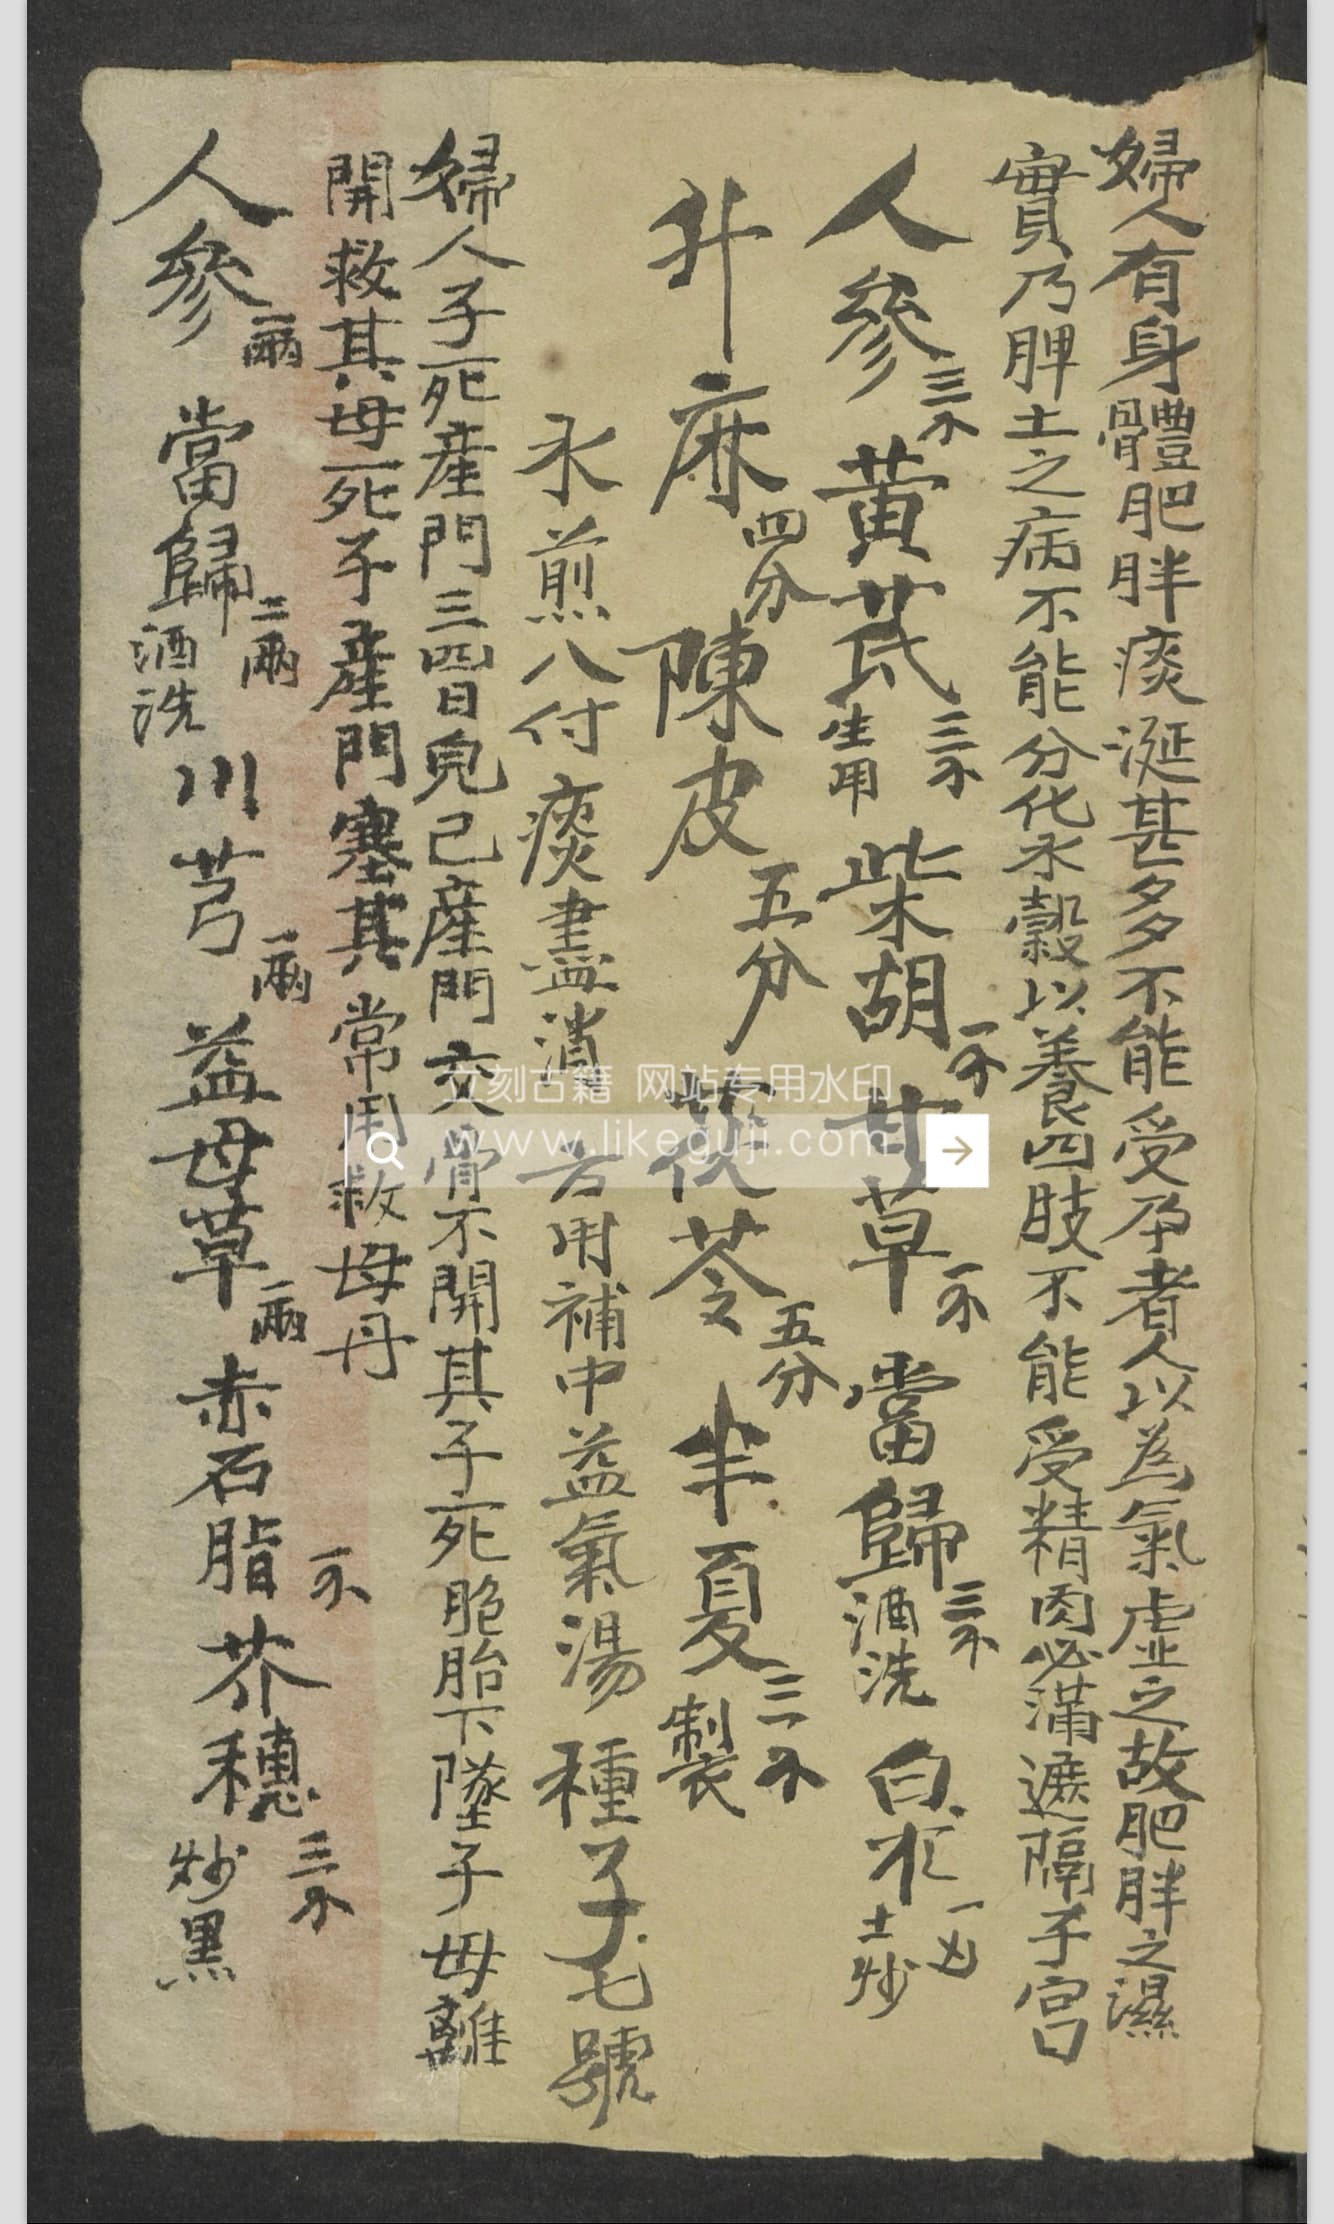 婦人有身體肥胖痰涎甚多不能受孕者人以為氣虛之故肥胖之濕
實乃脾土之病不能分化水穀以養四肢不能受精肉必滿遮隔子宮
人參三分黃芪三分生用柴胡一分甘草一分當歸三分酒洗白朮一兩土炒
升麻四分陳皮五分茯苓五分半夏三分製
水煎八付痰盡消 方用補中益氣湯種子七號
婦人子死產門三四日兒已產門交骨不開其子死胞胎下墜子母離
開救其母死子產門塞其常用救母丹
人參一兩當歸二兩酒洗川芎一兩益母草一兩赤石脂一分芥穗三分炒黑
立刻古籍 网站专用水印
www.likeguji.com